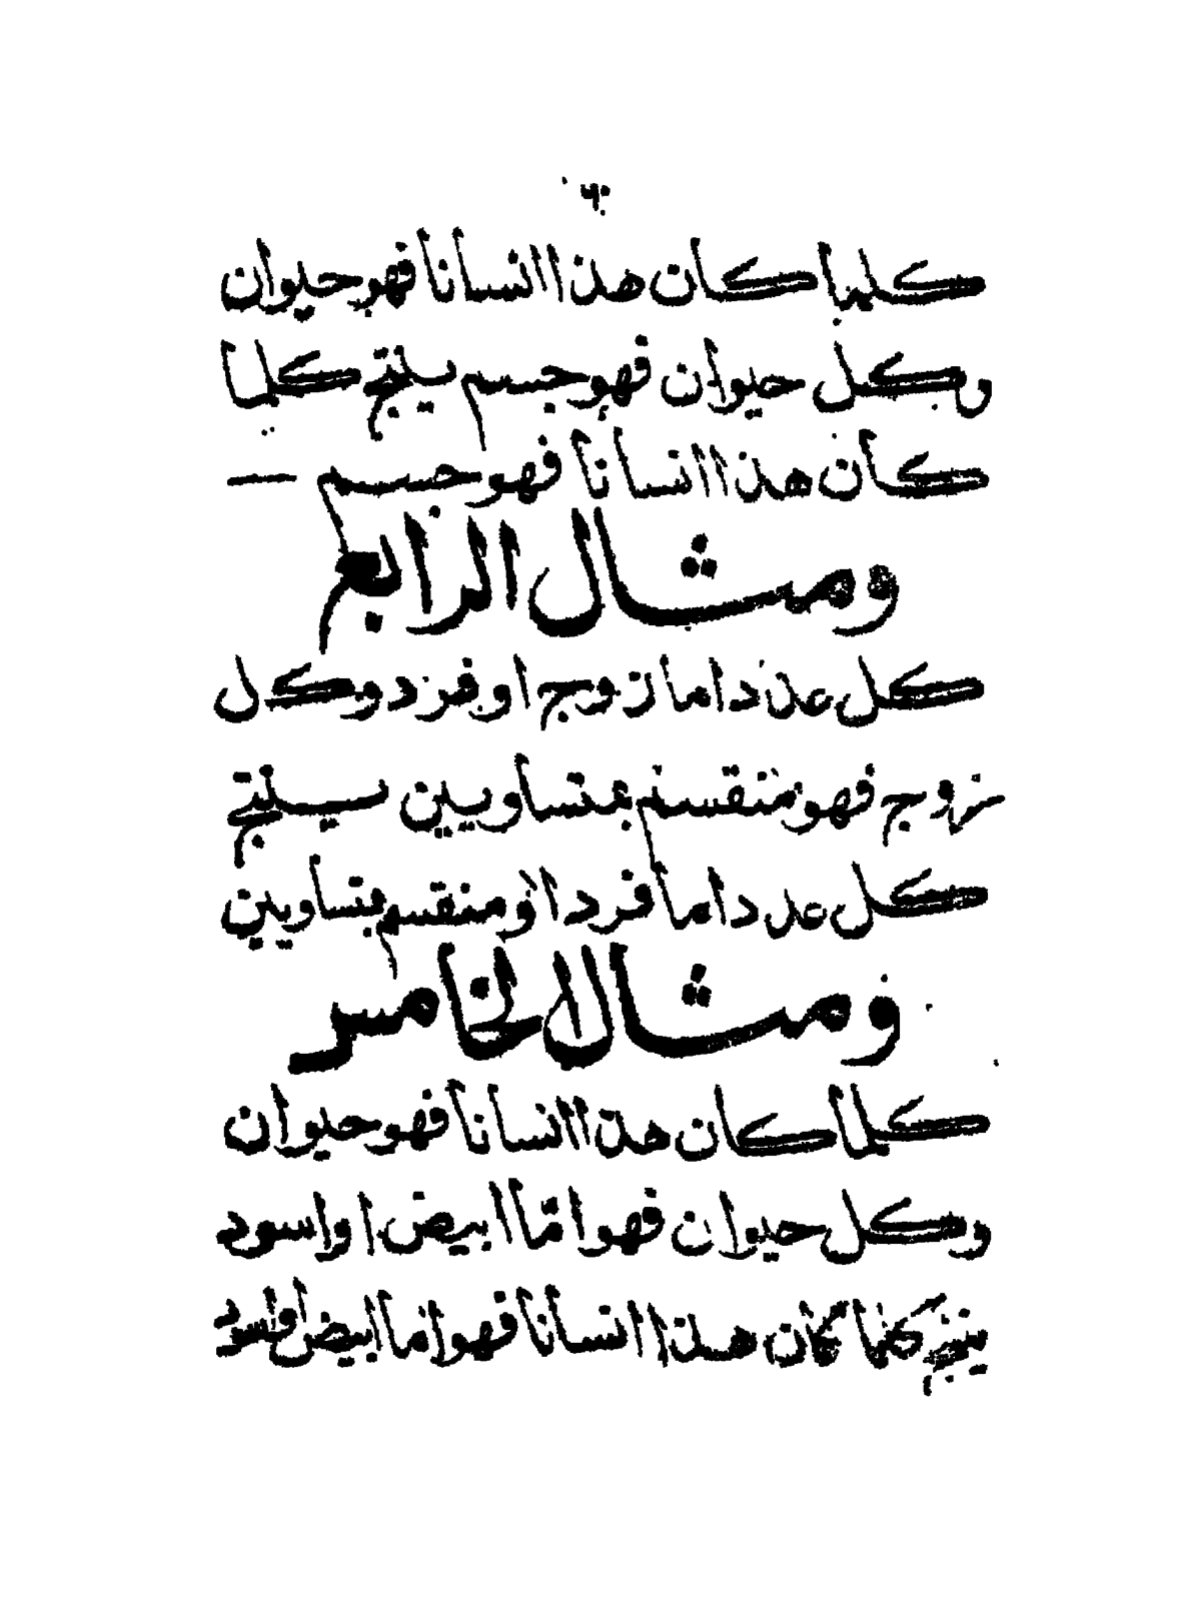 كلما كان هذا انسانا فهو حيوان
وكل حيوان فهو جسم ينتج كلما
كان هذا انسانا فهو جسم —
ومثال الرابع
كل عدد اما زوج او فرد وكل
زوج فهو منقسم بمتساويين ينتج
كل عدد اما فرد او منقسم بمتساويين
ومثال الخامس
كلما كان هذا انسانا فهو حيوان
وكل حيوان فهو امّا ابيض او اسود
ينتج كلما كان هذا انسانا فهو اما ابيض او اسود